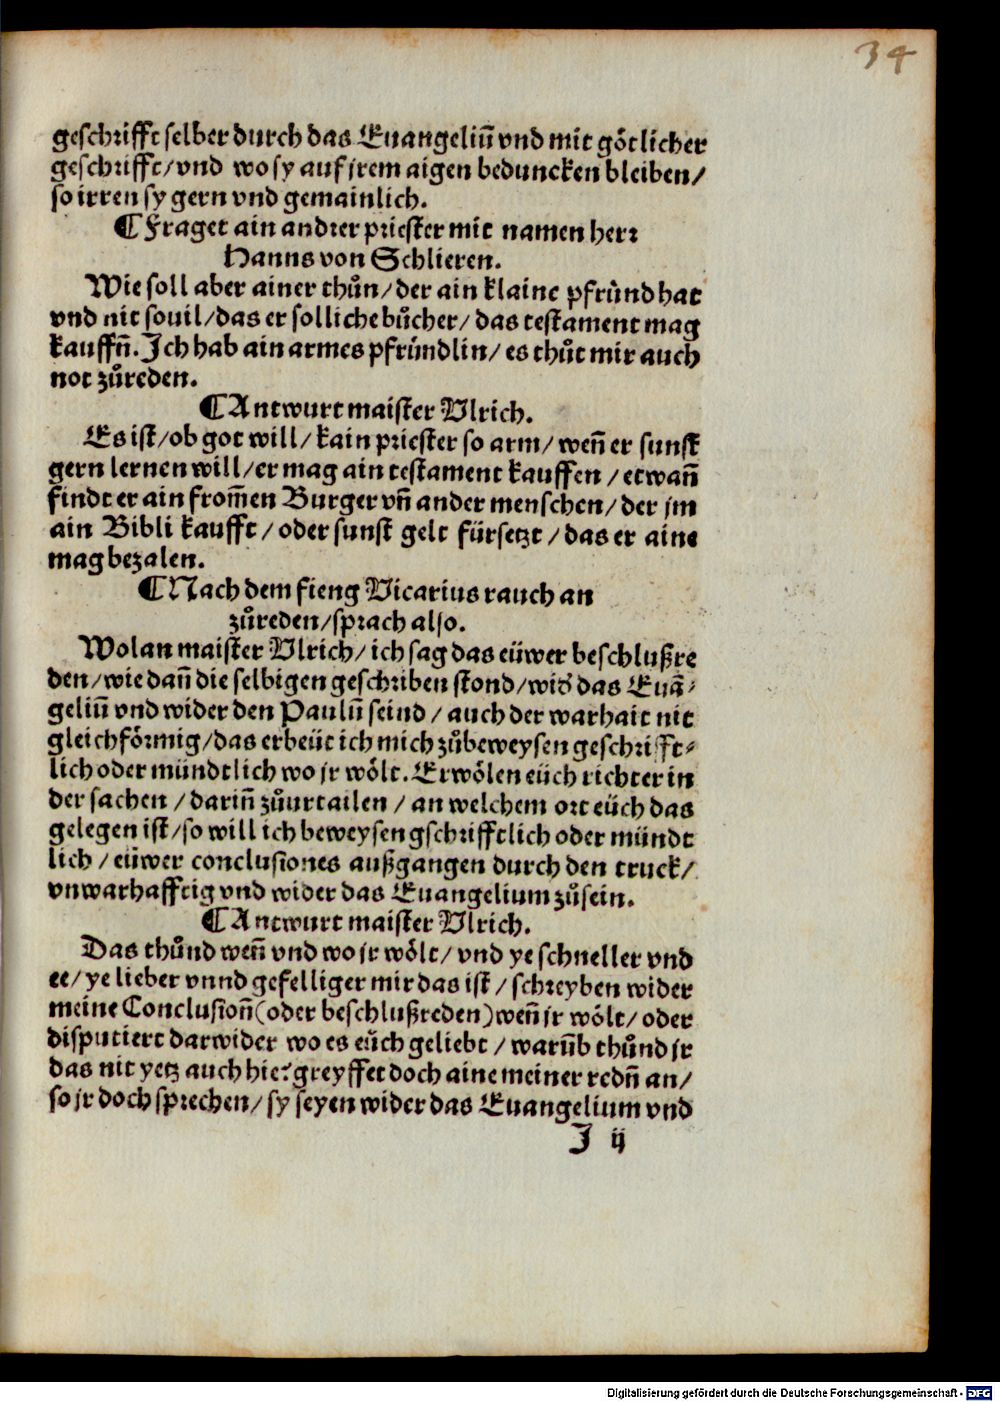 34
geschrifft selber durch das Euangeliū vnd mit gőtlicher
geschrifft/ vnd wo sy auf jrem aigen beduncken bleiben/
so irren sy gern vnd gemainlich.
¶ Fraget ain andrer priester mit namen herr
Hanns von Schlieren.
Wie soll aber ainer thůn/ der ain klaine pfrůnd hat
vnd nit souil/ das er solliche bůcher/ das testament mag
kauffñ. Ich hab ain armes pfründlin/ es thůt mir auch
not zůreden.
¶ Antwurt maister Vlrich.
Es ist/ ob got will/ kain priester so arm/ weñ er sunst
gern lernen will/ er mag ain testament kauffen/ etwañ
findt er ain from̃en Burger vñ ander menschen/ der jm
ain Bibli kaufft/ oder sunst gelt fürsetzt/ das er aine
mag bezalen.
¶ Nach dem fieng Vicarius rauch an
zůreden/ sprach also.
Wolan maister Vlrich/ ich sag das eüwer beschlußre
den/ wie dañ die selbigen geschriben stond/ wid' das Euā-
geliū vnd wider den Paulū seind/ auch der warhait nit
gleichfőrmig/ das erbeüt ich mich zůbeweysen geschrifft-
lich oder mündtlich wo jr wőlt. Erwőlen eüch richter in
der sachen/ dariñ zůurtailen/ an welchem ort eüch das
gelegen ist/ so will ich beweysen gschrifftlich oder mündt
lich/ eüwer conclusiones außgangen durch den truck/
vnwarhafftig vnd wider das Euangelium zůsein.
¶ Antwurt maister Vlrich.
Das thůnd weñ vnd wo jr wőlt/ vnd ye schneller vnd
ee/ ye lieber vnnd gefelliger mir das ist/ schreyben wider
meine Conclusioñ (oder beschlußreden) weñ jr wőlt/ oder
disputiert darwider wo es eüch geliebt/ warūb thůnd jr
das nit yetz auch hie? greyffet doch aine meiner redñ an/
so jr doch sprechen/ sy seyen wider das Euangelium vnd
J ij
Digitalisierung gefördert durch die Deutsche Forschungsgemeinschaft - DFG